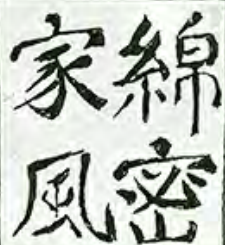 綿密
家風